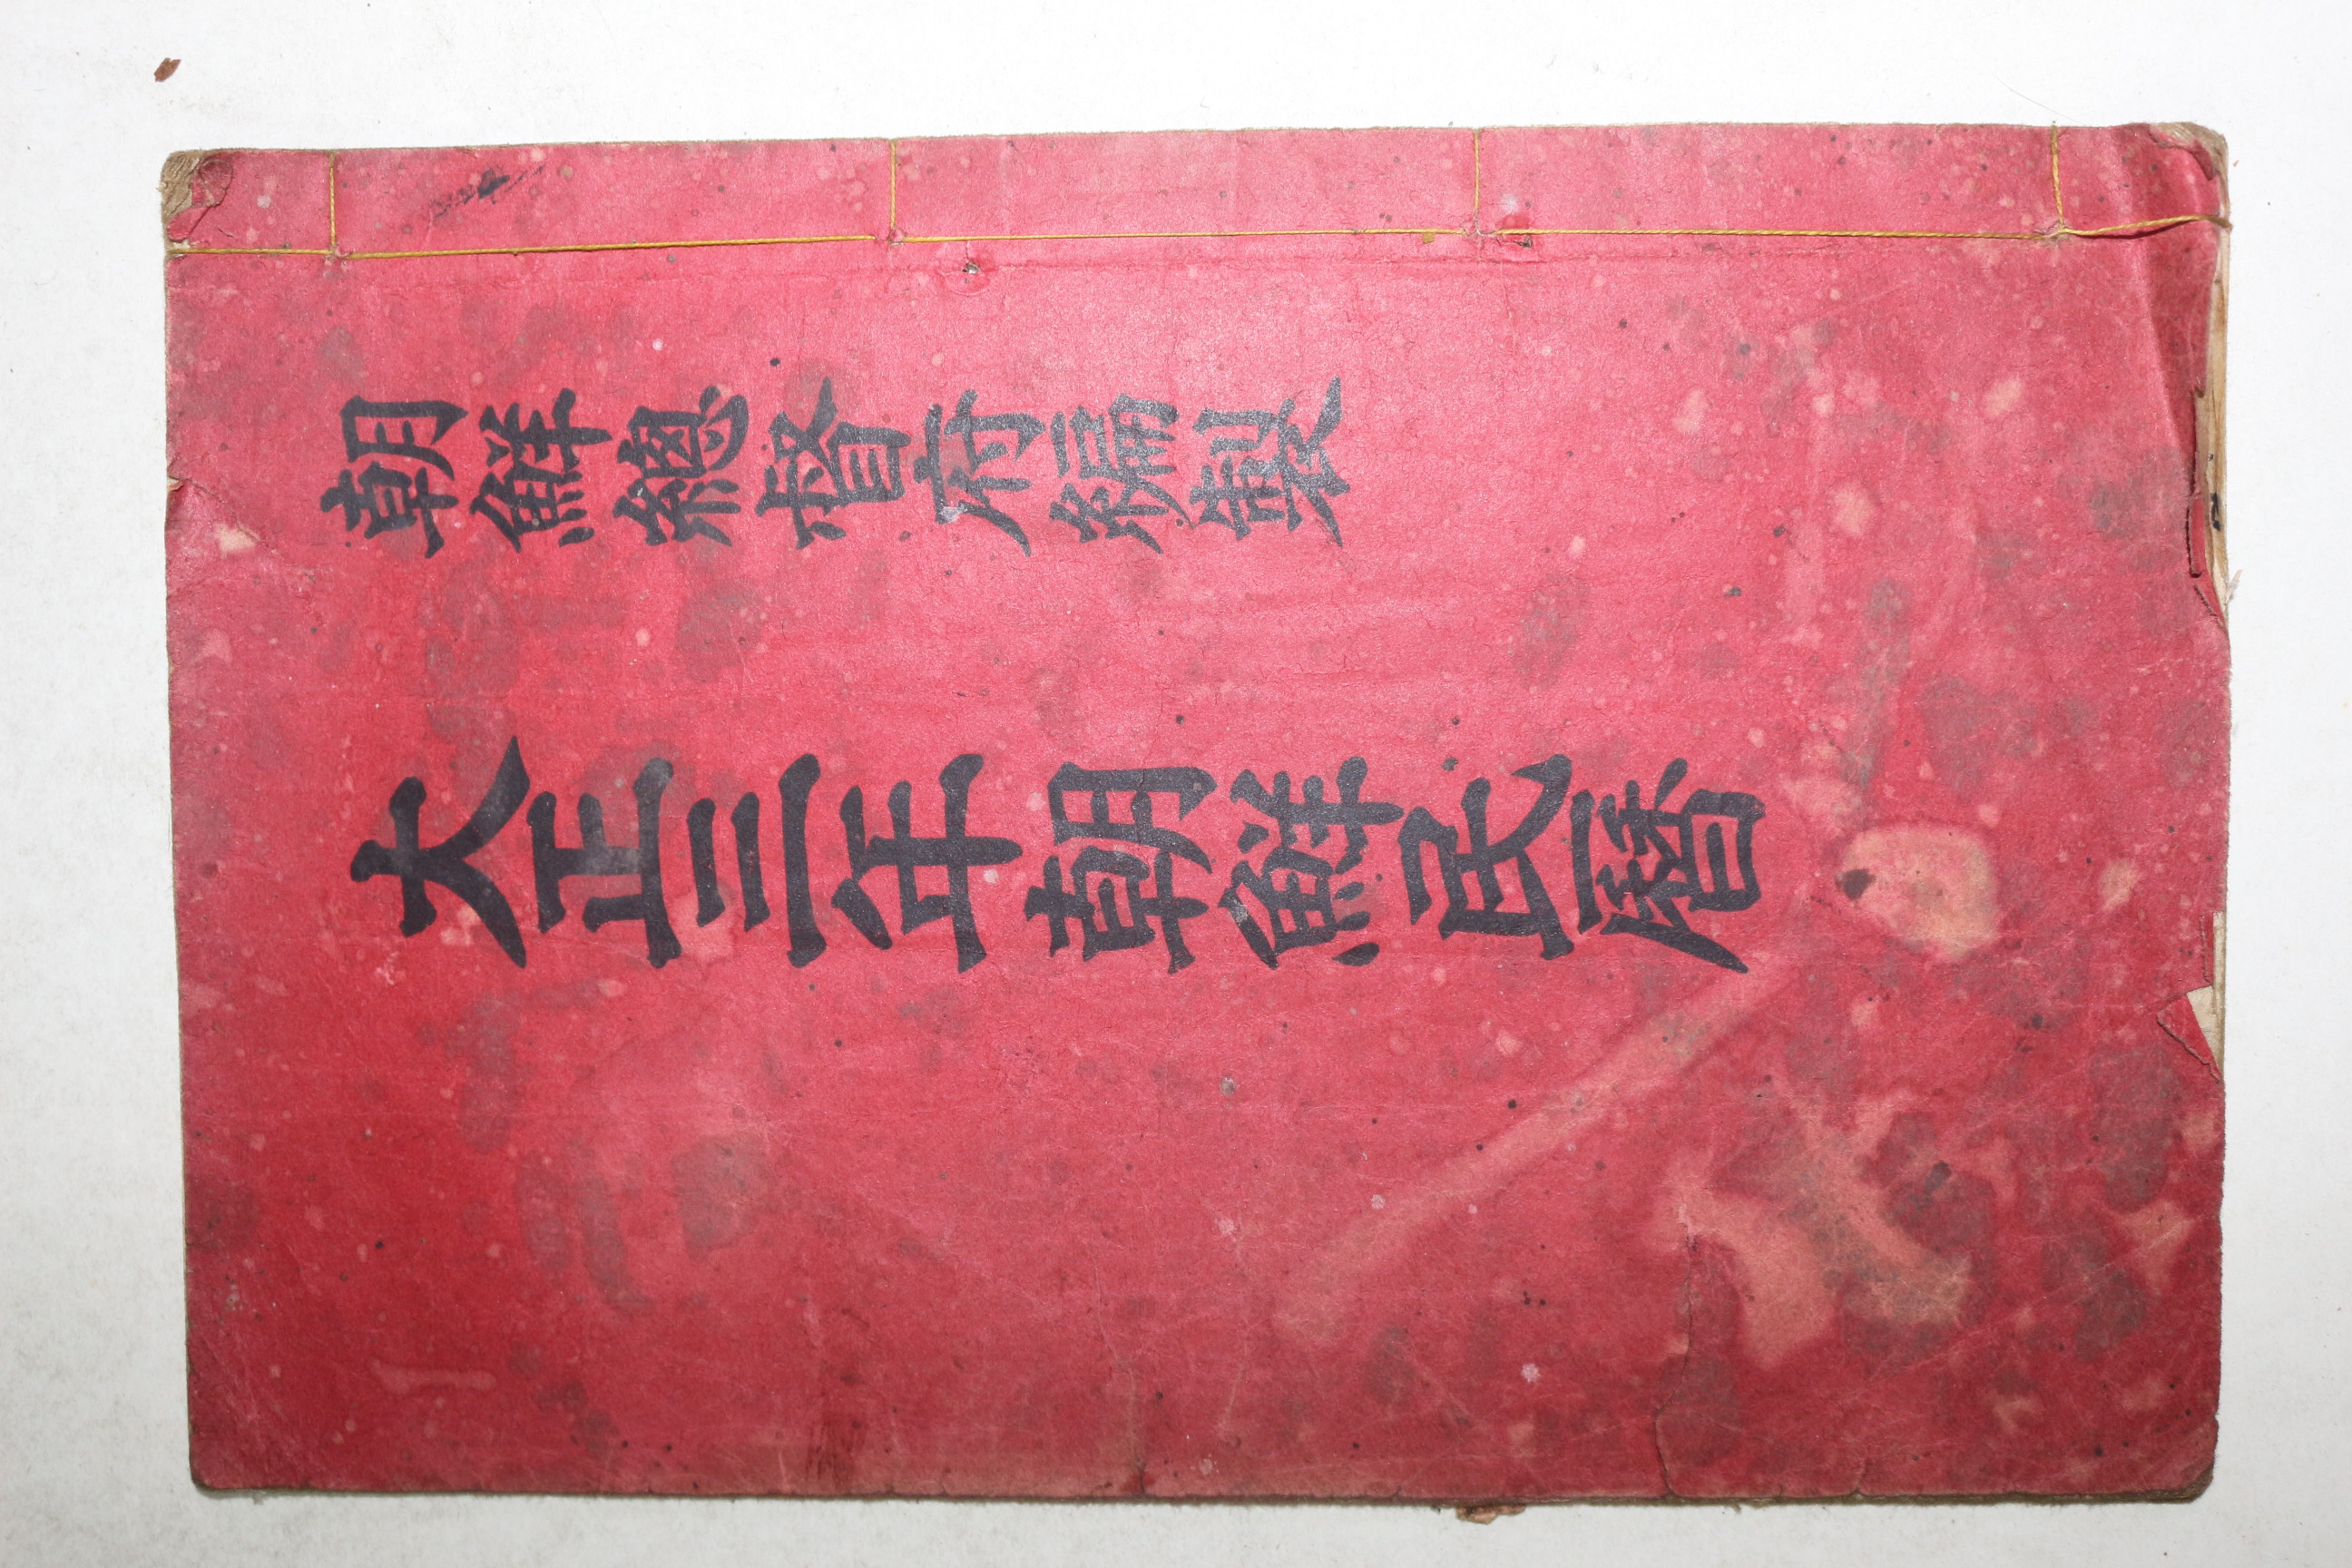 朝鮮總督府編製
大正三年朝鮮民曆